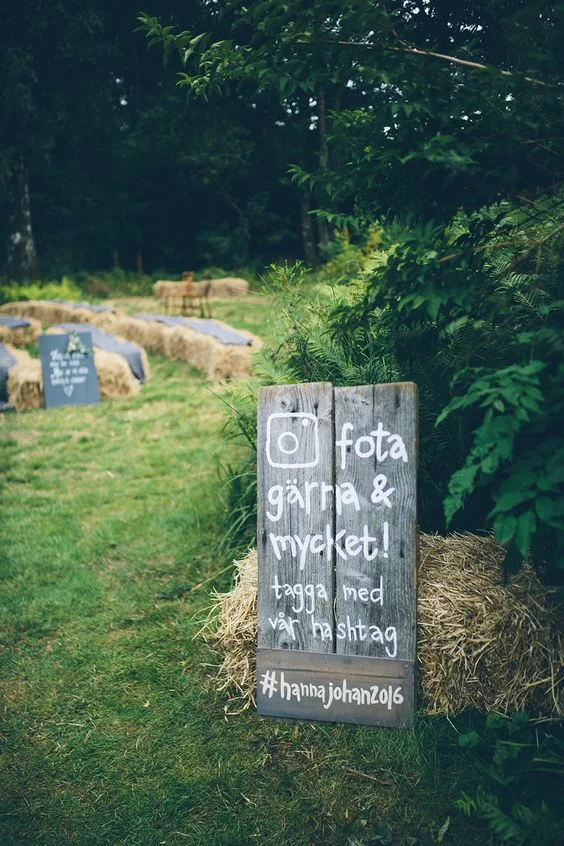 fota
gärna &
mycket!
tagga med
vår hashtag
#hannajohan2016